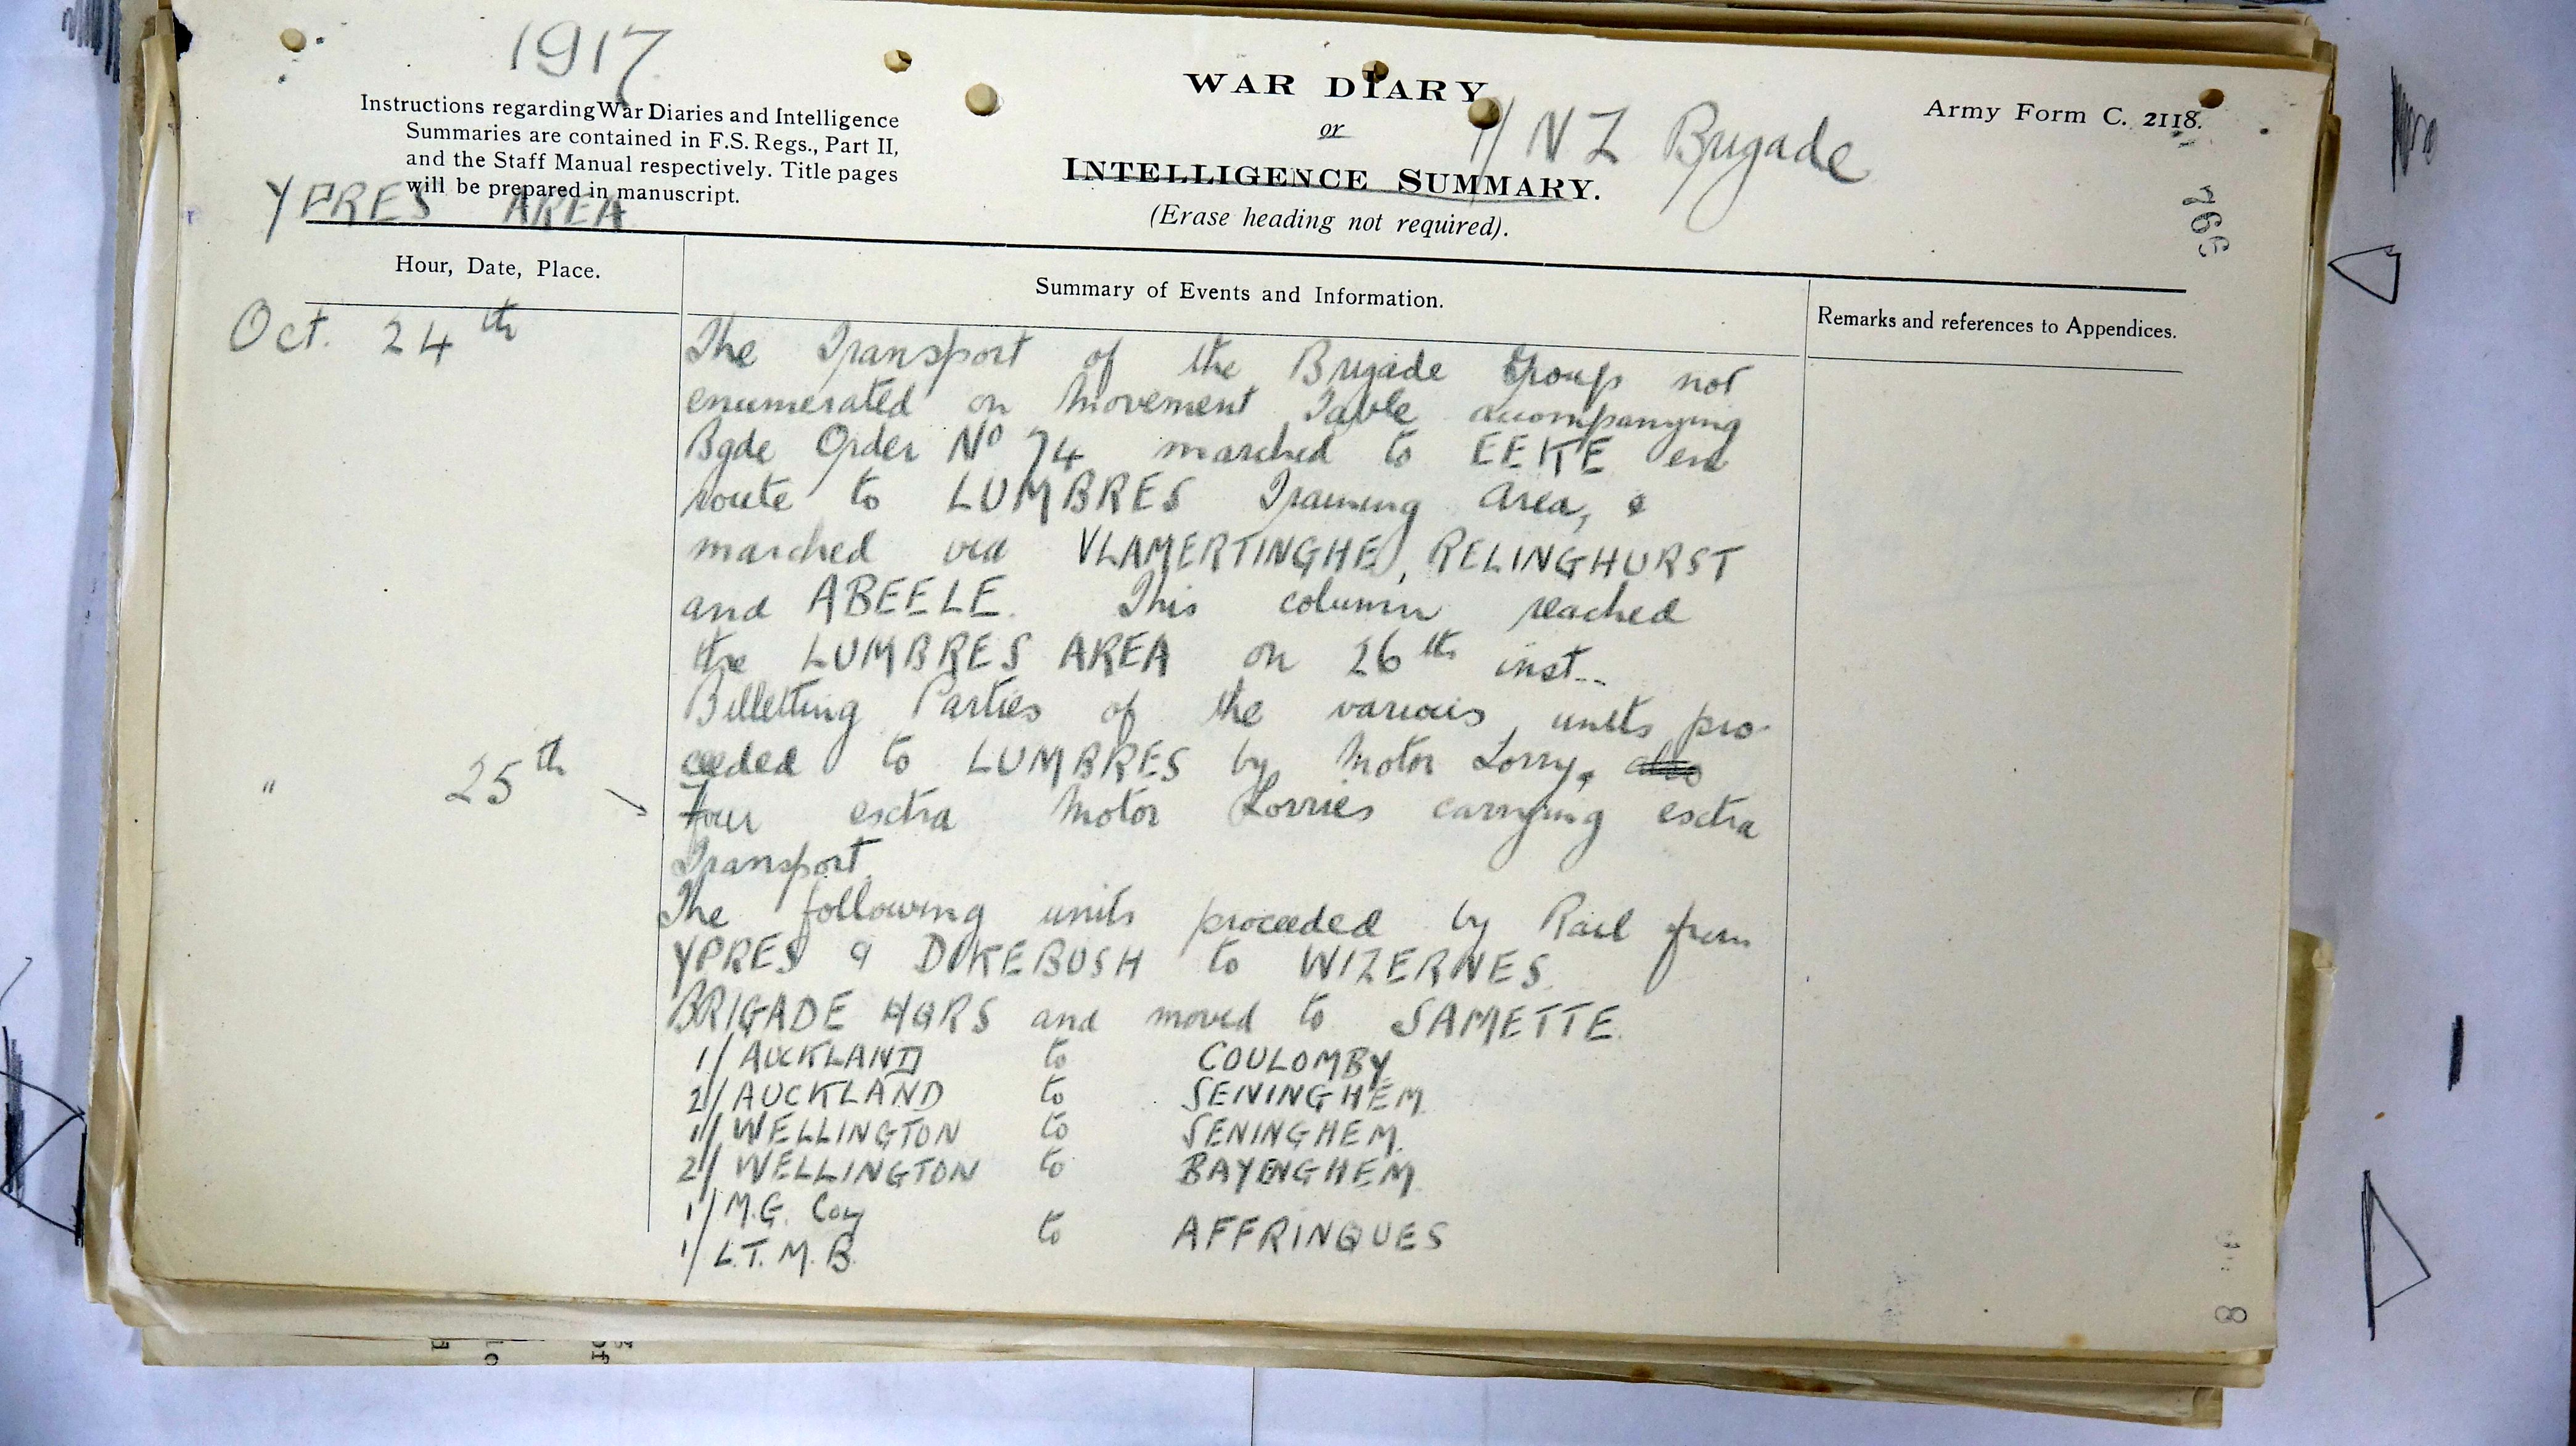 1917
Instructions regarding War Diaries and Intelligence
Summaries are contained in F.S. Regs., Part II,
and the Staff Manual respectively. Title pages
will be prepared in manuscript.
YPRES AREA
WAR DIARY
or
INTELLIGENCE SUMMARY.
(Erase heading not required).
1/ N Z Brigade
Army Form C. 2118.
Hour, Date, Place.
Summary of Events and Information.
Remarks and references to Appendices.
Oct. 24th
The Transport of the Brigade Group not
enumerated on Movement Table accompanying
Bgde Order No 74 marched to EEKE en
route to LUMBRES Training Area, &
marched via VLAMERTINGHE, RELINGHURST
and ABEELE. This column reached
the LUMBRES AREA on 26th inst..
Billetting Parties of the various units pro-
ceeded to LUMBRES by Motor Lorry, also
" 25th
Four extra Motor Lorries carrying extra
Transport.
The following units proceeded by Rail from
YPRES & DIKEBUSH to WIZERNES.
BRIGADE HQRS and moved to SAMETTE.
1/ AUCKLAND to COULOMBY
2/ AUCKLAND to SENINGHEM
1/ WELLINGTON to SENINGHEM.
2/ WELLINGTON to BAYENGHEM
1/ M.G. Coy
to AFFRINQUES
1/ L.T.M.B.
8